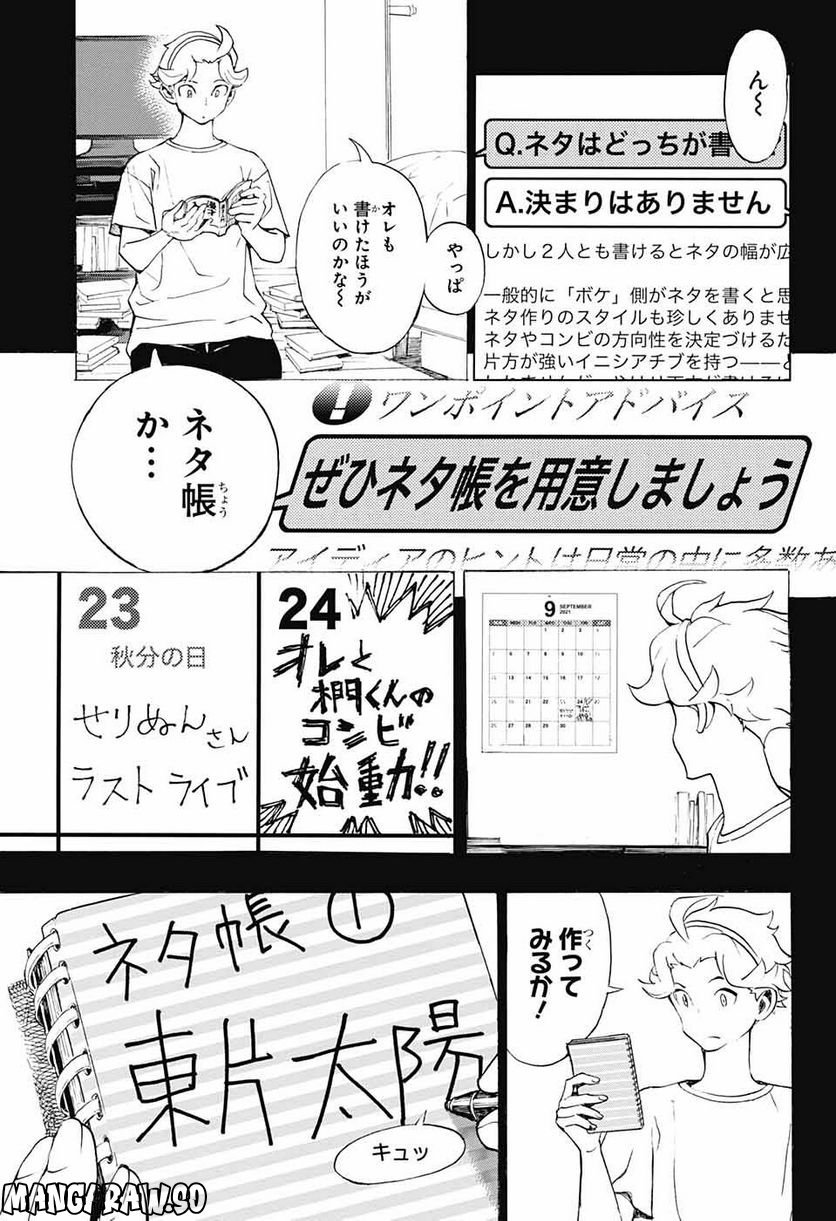 ん〜
Q.ネタはどっちが書
A.決まりはありません
しかし２人とも書けるとネタの幅が広
一般的に「ボケ」側がネタを書くと思
ネタ作りのスタイルも珍しくありませ
ネタやコンビの方向性を決定づけるた
片方が強いイニシアチブを持つ――と
やっぱ
オレも
書けたほうが
か
いいのかな〜
！ワンポイントアドバイス
ぜひネタ帳を用意しましょう
アイディアのヒントは日常の中に多数を
ネタ帳
ちょう
か…
9 SEPTEMBER
2021
24
オレと
椚くんの
コンビ
始動!!
23
秋分の日
せりぬんさん
ラストライブ
作って
つく
みるか！
ネタ帳 ①
東片太陽
キュッ
MANGARAW.SO